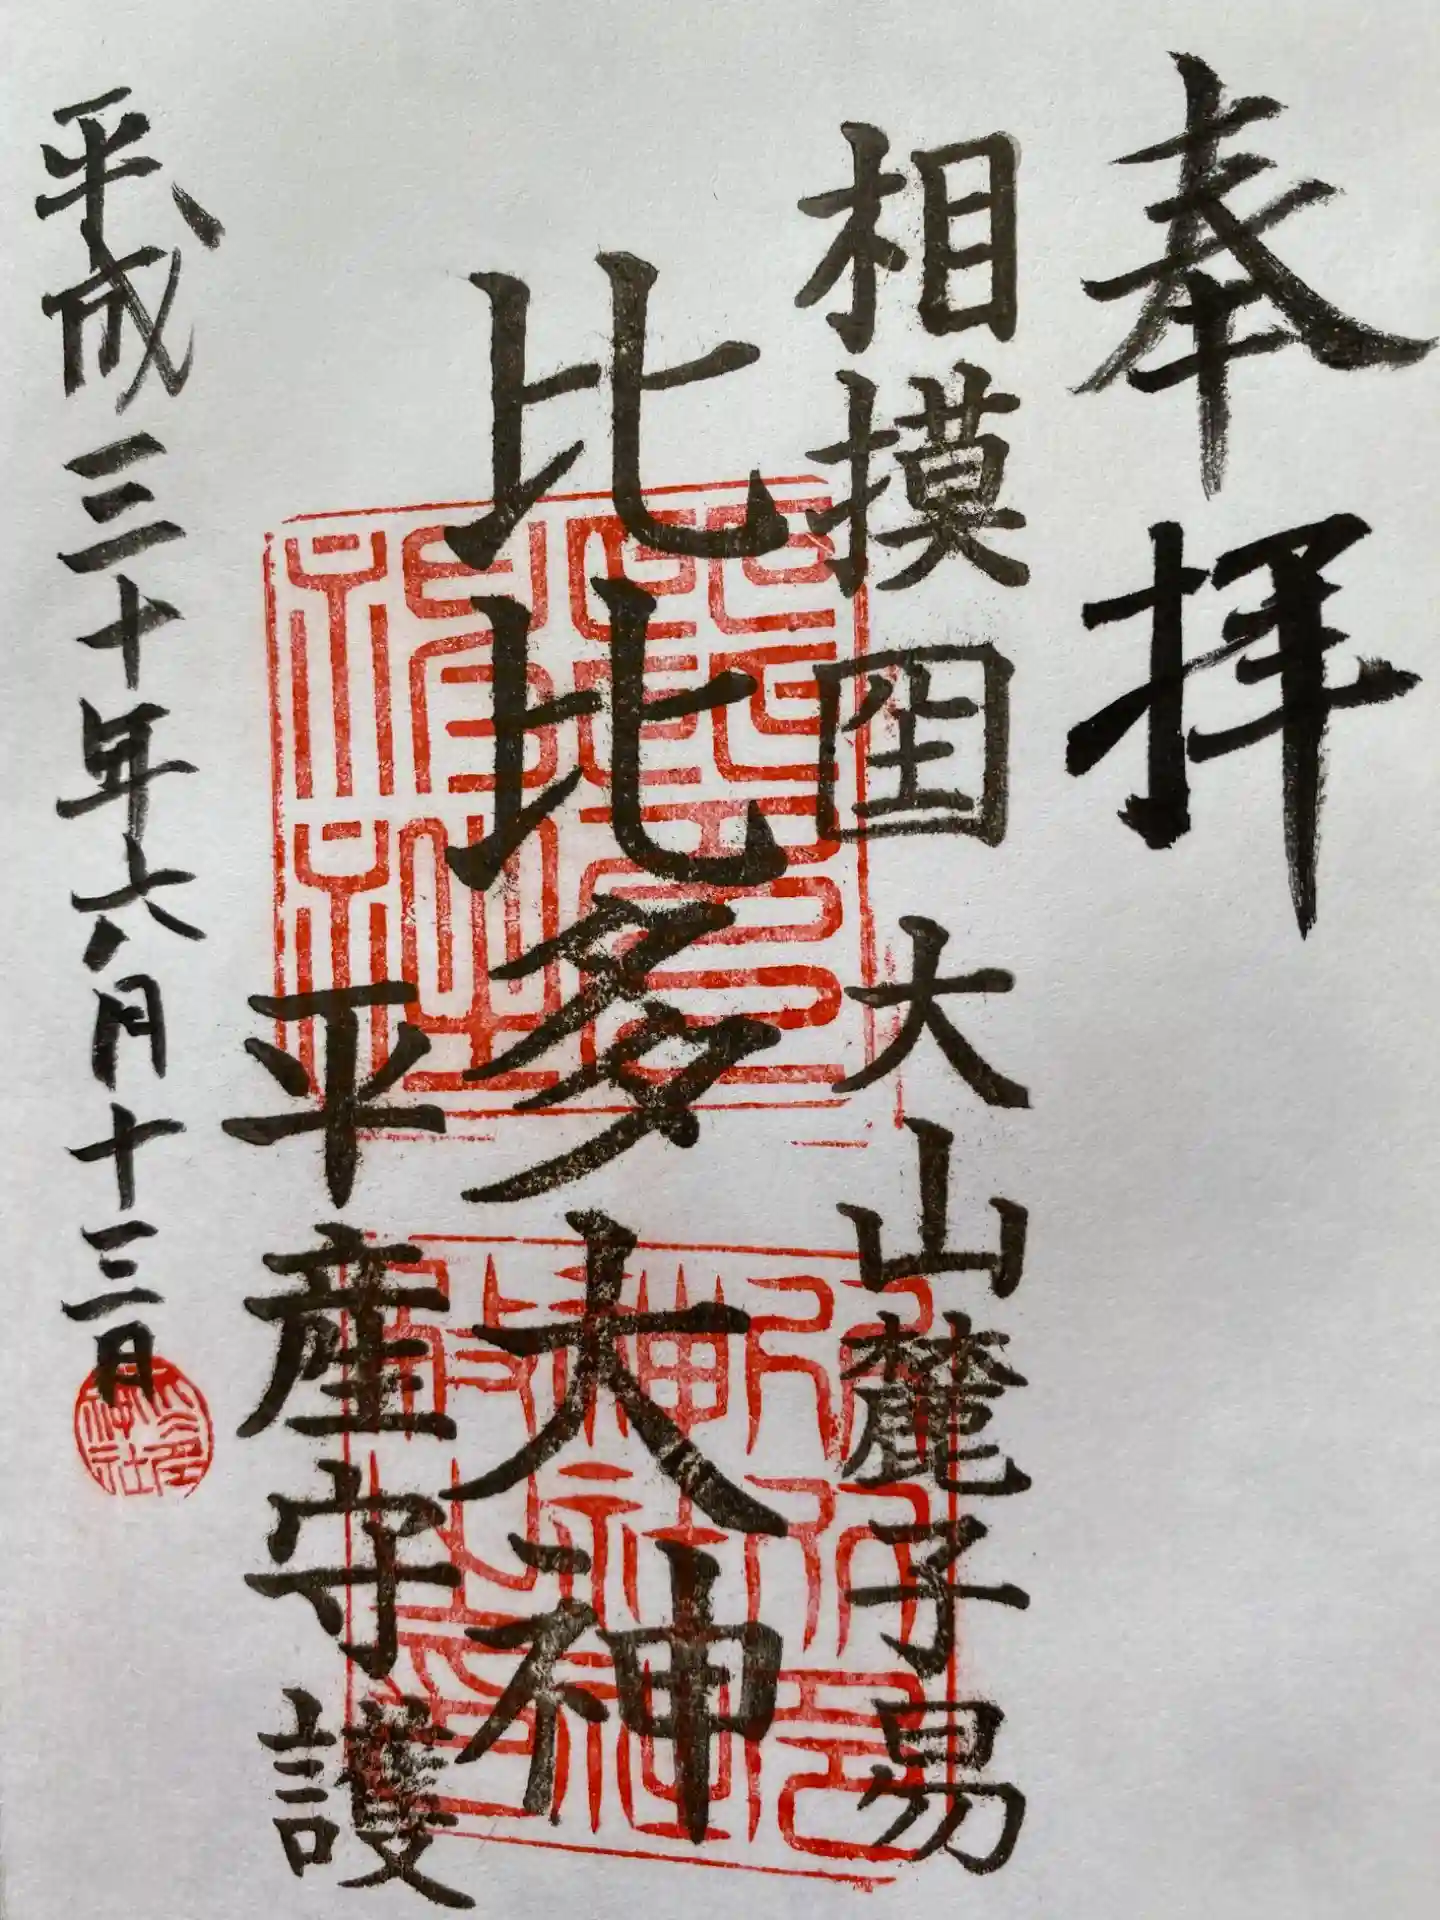 奉拝
相摸囯大山麓子易
比比多大神
平産守護
平成三十年六月十三日